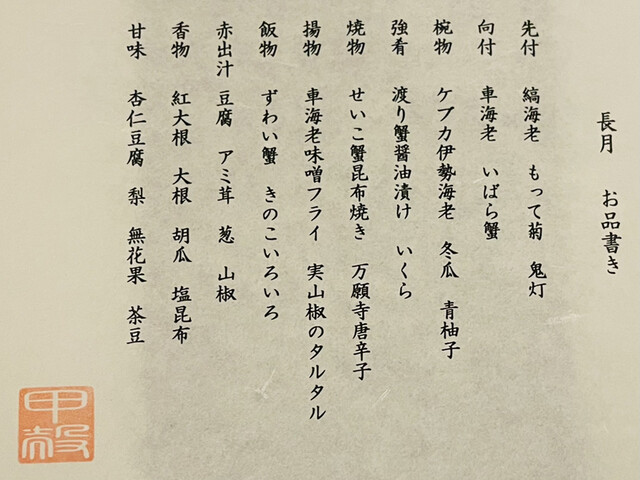 長月 お品書き
先付 縞海老 もって菊 鬼灯
向付 車海老 いばら蟹
椀物 ケブカ伊勢海老 冬瓜 青柚子
強肴 渡り蟹醤油漬け いくら
焼物 せいこ蟹昆布焼き 万願寺唐辛子
揚物 車海老味噌フライ 実山椒のタルタル
飯物 ずわい蟹 きのこいろいろ
赤出汁 豆腐 アミ茸 葱 山椒
香物 紅大根 大根 胡瓜 塩昆布
甘味 杏仁豆腐 梨 無花果 茶豆
甲殻